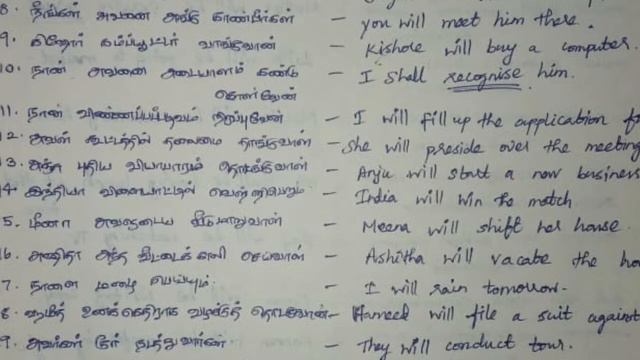 8. நீங்கள் அவனை அங்கு காண்பீர்கள் – you will meet him there.
9. கிஷோர் கம்ப்யூட்டர் வாங்குவான் – Kishore will buy a computer.
10. நான் அவனை அடையாளம் கண்டு – I shall recognise him.
கொள்வேன்
11. நான் விண்ணப்பப்படிவம் நிரப்புவேன் – I will fill up the application
12. அவள் கூட்டத்தில் தலைமை தாங்குவாள் – She will preside over the meeting
13. புதிய வியாபாரம் தொடங்குவாள் – Anju will start a new business
14. இந்தியா விளையாட்டில் வெற்றிபெறும் – India will win the match
5. மீனா அவளுடைய – Meera will shift her house.
16. அஷிதா அந்த வீட்டைக் காலி செய்வாள் – Ashitha will vacate the
7. நாளை மழை பெய்யும். – I will rain tomorrow.
8. ஹமீத் உனக்கெதிராக வழக்கு தொடுவான் – Hameed will file a suit against
9. அவர்கள் டூர் நடத்துவார்கள் – They will conduct tour.